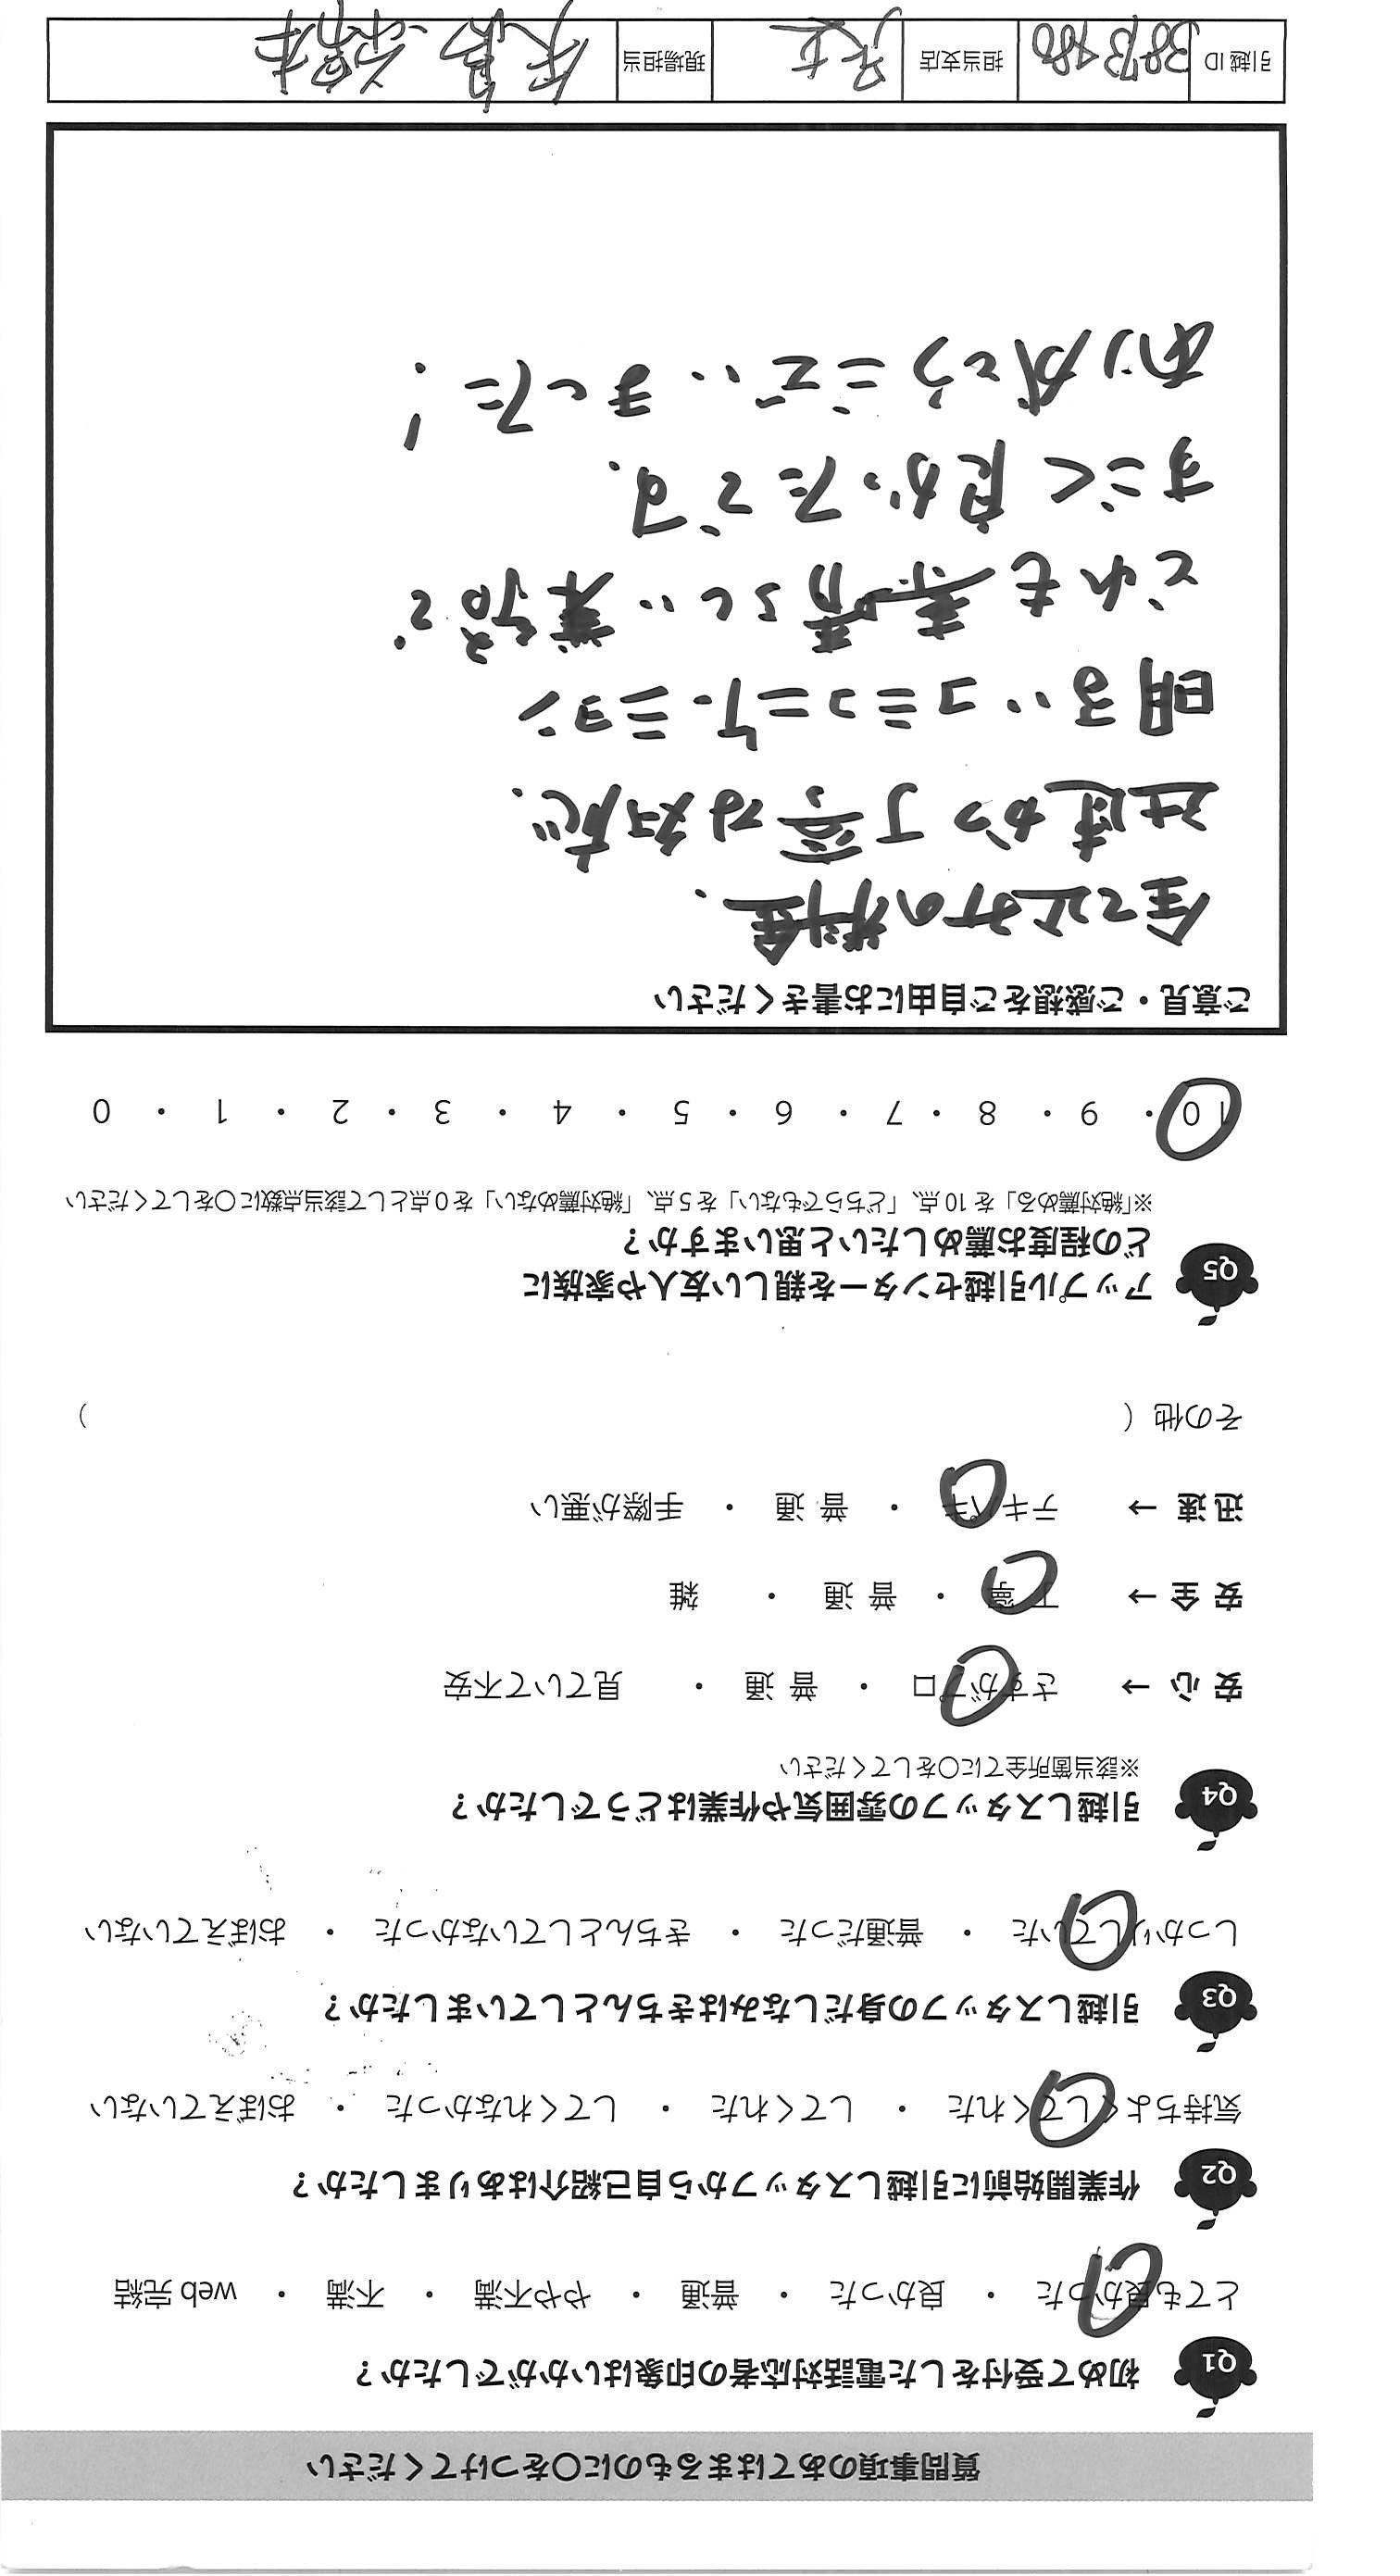 質問事項のあてはまるものに〇をつけてください
Q1 初めて受付をした電話対応者の印象はいかがでしたか？
とても良かった ・ 良かった ・ 普通 ・ やや不満 ・ 不満 ・ web 完結
Q2 作業開始前に引越しスタッフから自己紹介はありましたか？
気持ちよくしてくれた ・ してくれた ・ してくれなかった ・ おぼえていない
Q3 引越しスタッフの身だしなみはきちんとしていましたか？
しっかりしていた ・ 普通だった ・ きちんとしていなかった ・ おぼえていない
Q4 引越しスタッフの雰囲気や作業はどうでしたか？
※該当箇所全てに〇をしてください
安 心 → さすがプロ ・ 普 通 ・ 見ていて不安
安 全 → 丁寧 ・ 普 通 ・ 雑
迅 速 → テキパキ ・ 普 通 ・ 手際が悪い
その他（ ）
Q5 アップル引越センターを親しい友人や家族に
どの程度お薦めしたいと思いますか？
※「絶対薦める」を 10 点、「どちらでもない」を 5 点、「絶対薦めない」を 0 点として該当点数に〇をしてください
10 ・ 9 ・ 8 ・ 7 ・ 6 ・ 5 ・ 4 ・ 3 ・ 2 ・ 1 ・ 0
ご意見・ご感想をご自由にお書きください
全て込みの料金、
迅速かつ丁寧な対応、
明るいコミュニケーション
どれも素晴らしい業者で
すごく良かったです。
ありがとうございました！
引越 ID 3873480 担当支店 現場担当